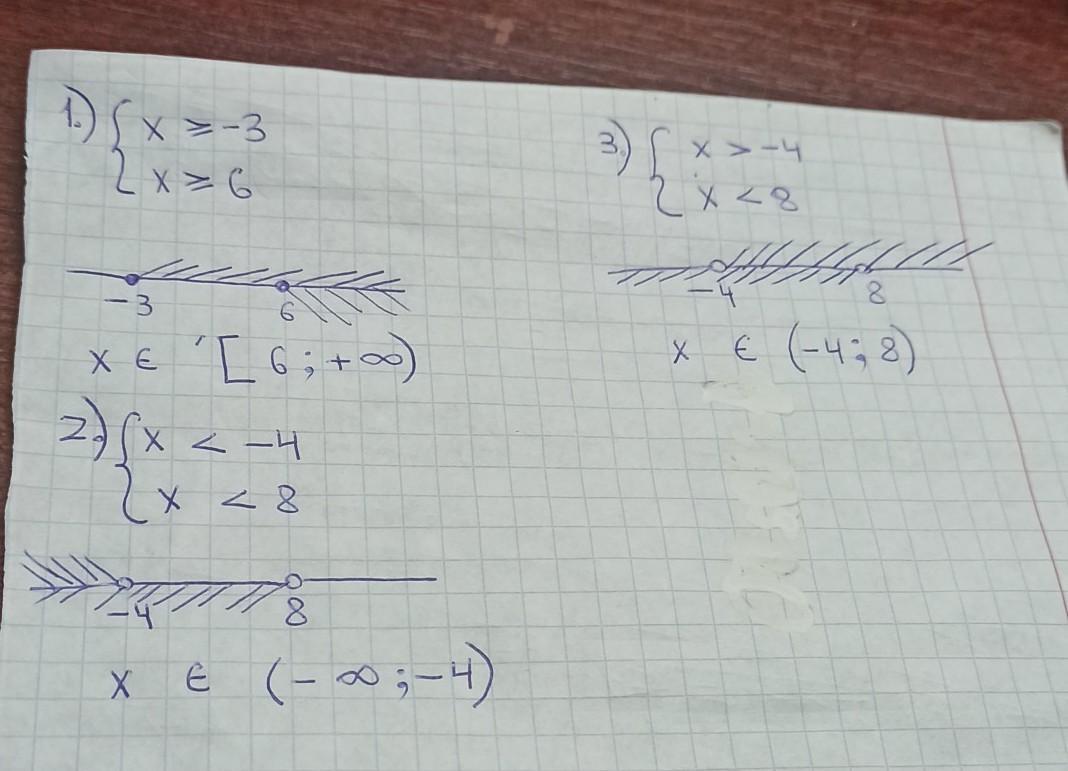 1.) { x ⩾ -3
x ⩾ 6
-3 6
x ∈ [ 6 ; + ∞)
2.) { x < -4
x < 8
-4 8
x ∈ (- ∞ ; -4)
3.) { x > -4
x < 8
-4 8
x ∈ (-4 ; 8)